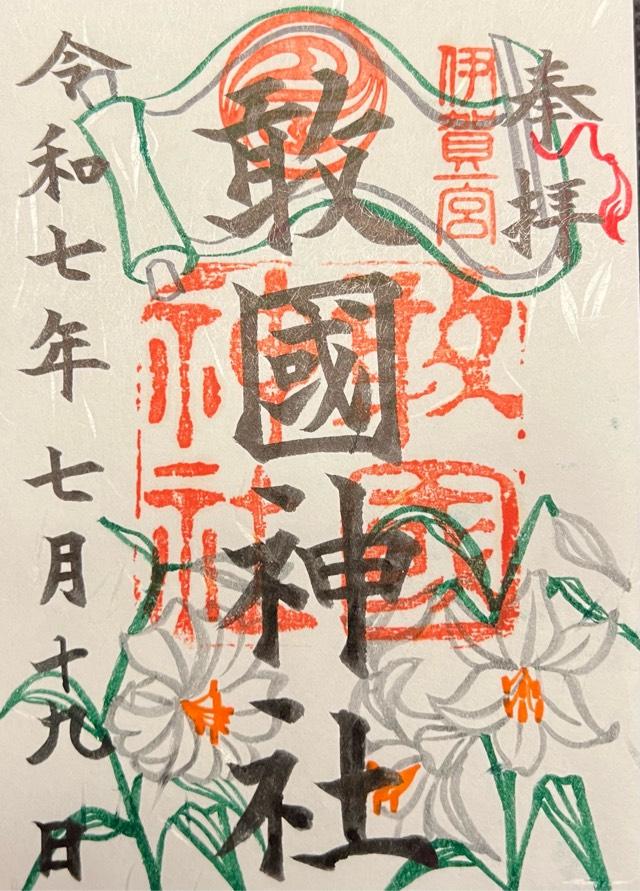 奉拝
伊賀一宮
敢國神社
敢国神社
令和七年七月十九日